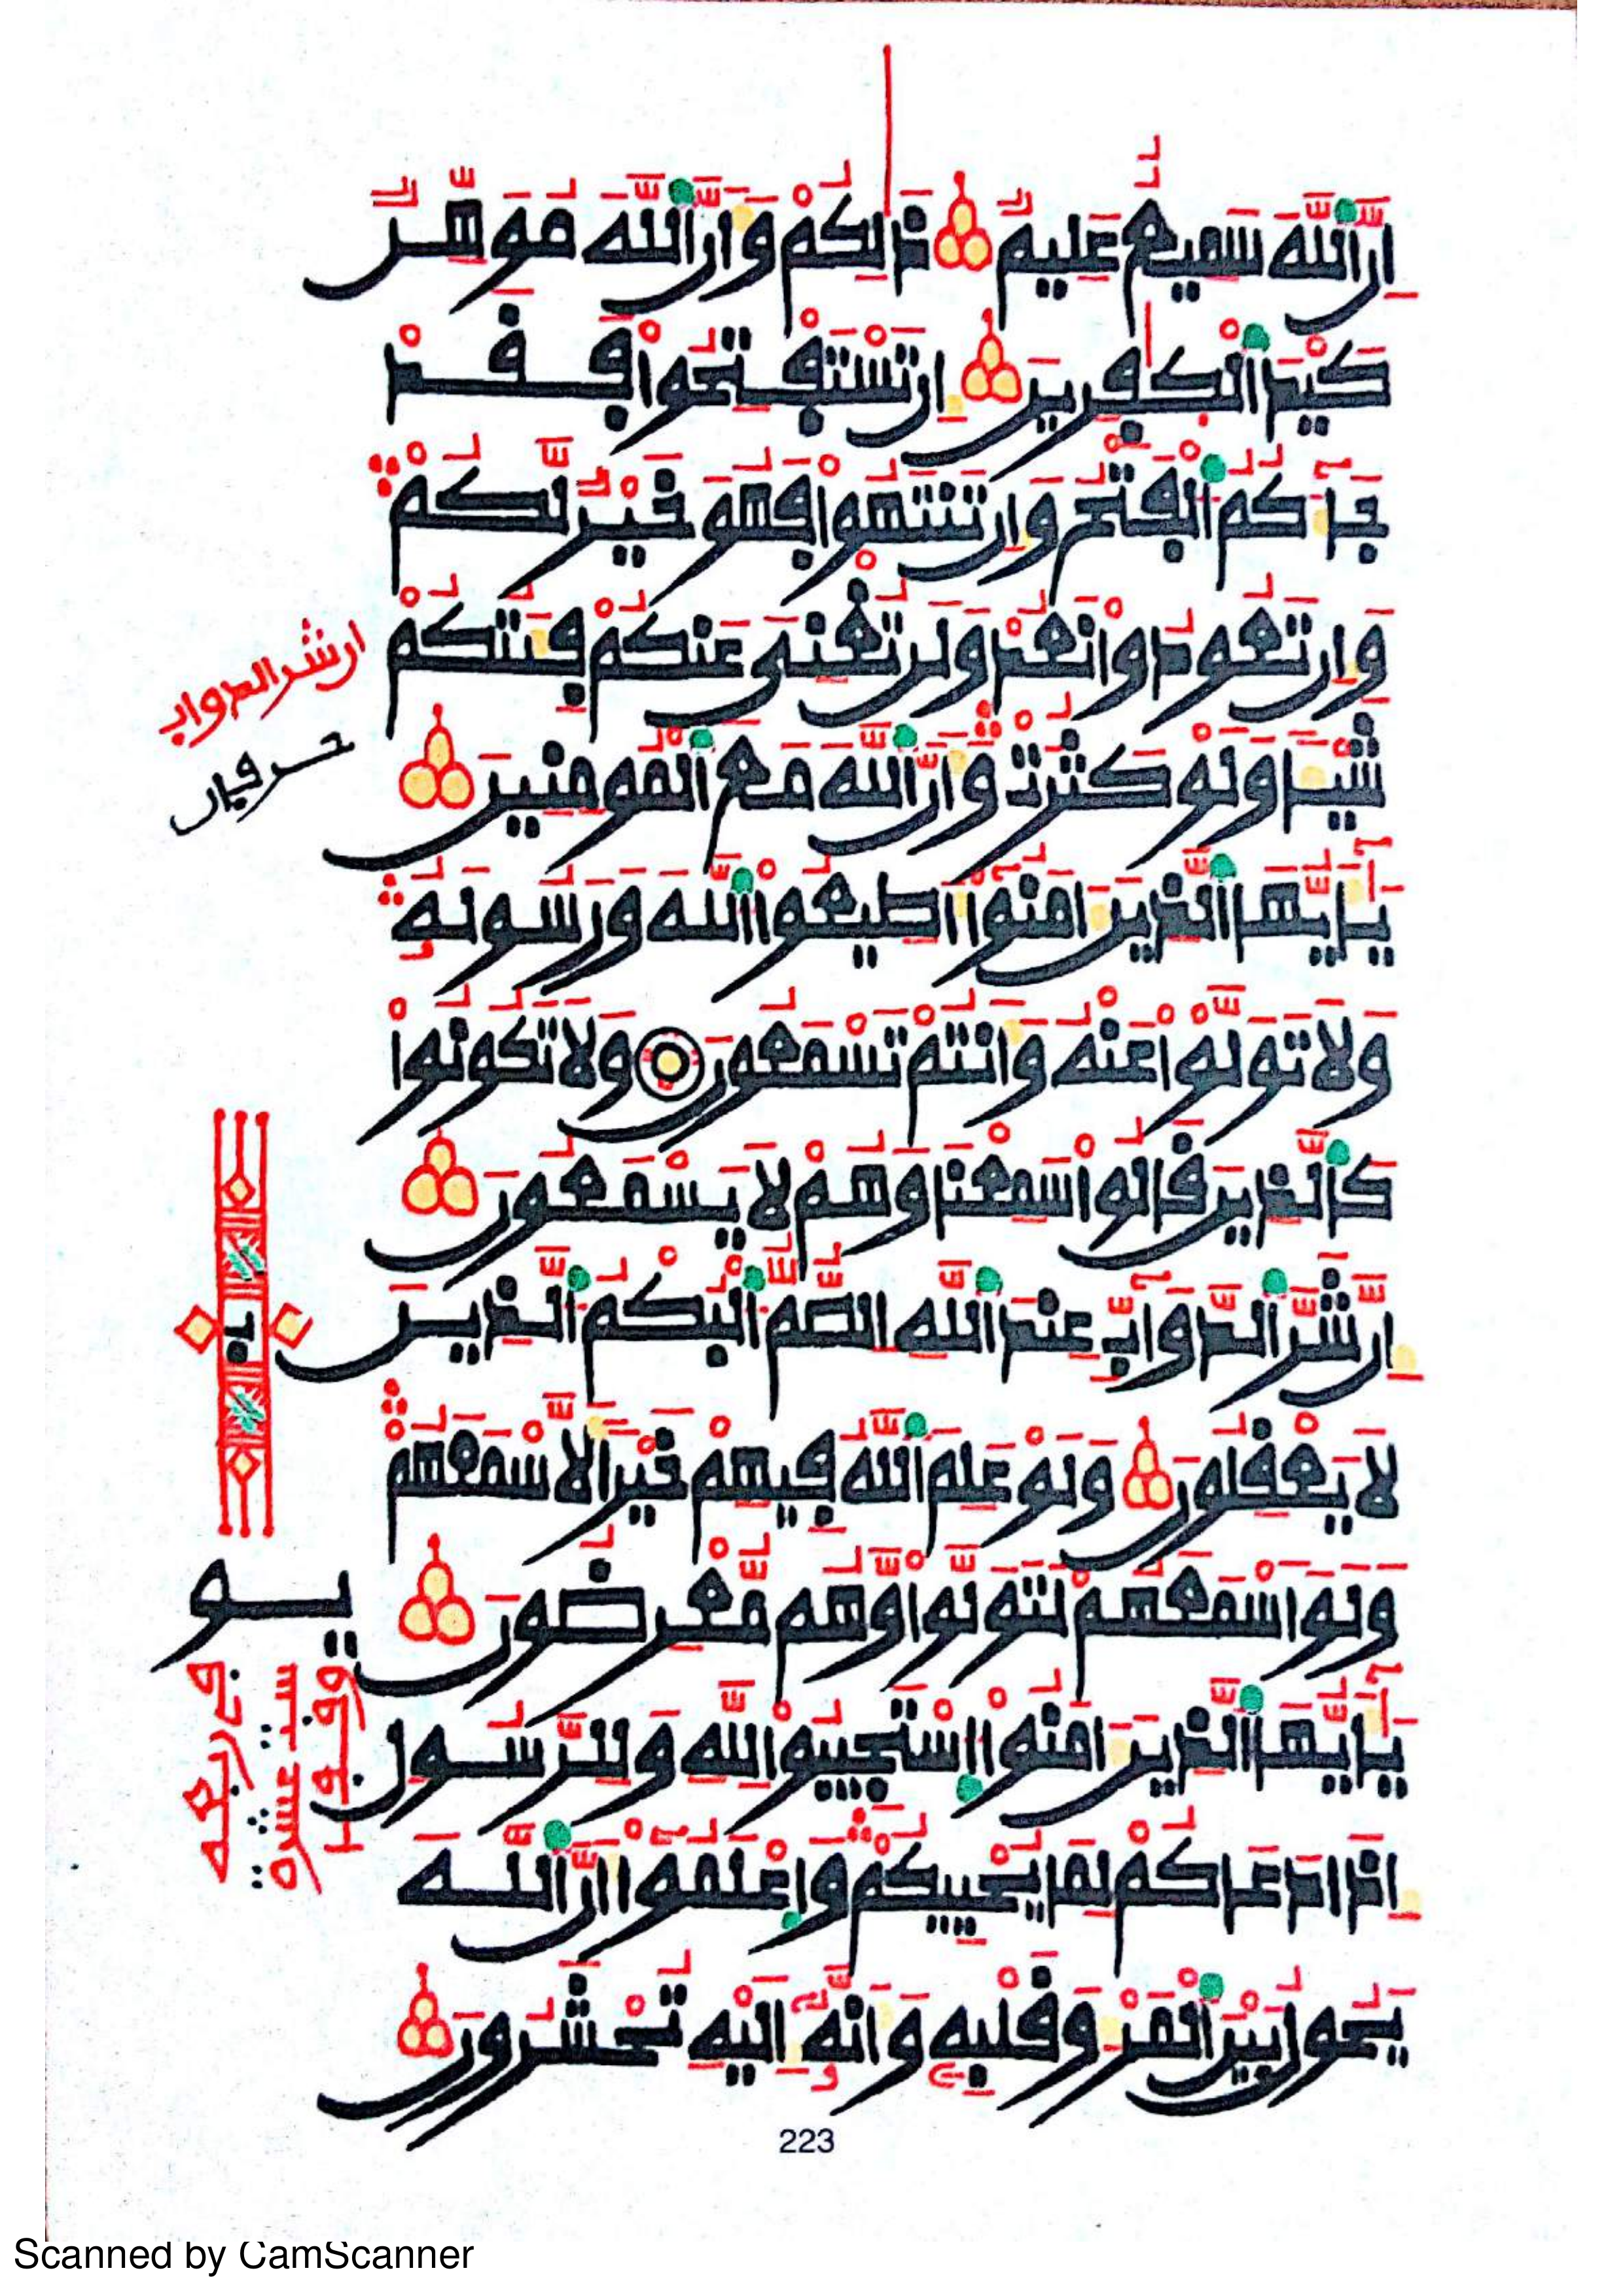 إِنَّ اَ۬للَّهَ سَمِيعٌ عَلِيمٌ ذَٰلِكُمْ وَأَنَّ اَ۬للَّهَ مُوَهِّنٌ
كَيْدَ اَ۬لْكَٰفِرِينَ إِن تَسْتَفْتِحُواْ فَقَدْ
جَآءَكُمُ اُ۬لْفَتْحُ وَإِن تَنتَهُواْ فَهُوَ خَيْرٌ لَّكُمْ
وَإِن تَعُودُواْ نَعُدْ وَلَن تُغْنِيَ عَنكُمْ فِئَتُكُمْ
شَيْـًٔا وَلَوْ كَثُرَتْ وَأَنَّ اَ۬للَّهَ مَعَ اَ۬لْمُومِنِينَ
يَٰٓأَيُّهَا اَ۬لذِينَ ءَامَنُوٓاْ أَطِيعُواْ اُ۬للَّهَ وَرَسُولَهُۥ
وَلَا تَوَلَّوْاْ عَنْهُ وَأَنتُمْ تَسْمَعُونَ وَلَا تَكُونُواْ
كَالذِينَ قَالُواْ سَمِعْنَا وَهُمْ لَا يَسْمَعُونَ
إِنَّ شَرَّ اَ۬لدَّوَآبِّ عِندَ اَ۬للَّهِ اِ۬لصُّمُّ اُ۬لْبُكْمُ اُ۬لذِينَ
لَا يَعْقِلُونَ وَلَوْ عَلِمَ اَ۬للَّهُ فِيهِمْ خَيْرًا لَّأَسْمَعَهُمْ
وَلَوَ اَسْمَعَهُمْ لَتَوَلَّواْ وَّهُم مُّعْرِضُونَ
يَٰٓأَيُّهَا اَ۬لذِينَ ءَامَنُواْ اُ۪سْتَجِيبُواْ لِلهِ وَلِلرَّسُولِ
إِذَا دَعَاكُمْ لِمَا يُحْيِيكُمْ وَاعْلَمُوٓاْ أَنَّ اَ۬للَّهَ
يَحُولُ بَيْنَ اَ۬لْمَرْءِ وَقَلْبِهِۦ وَأَنَّهُۥٓ إِلَيْهِ تُحْشَرُونَ
223
ان شر الدواب
Scanned by CamScanner